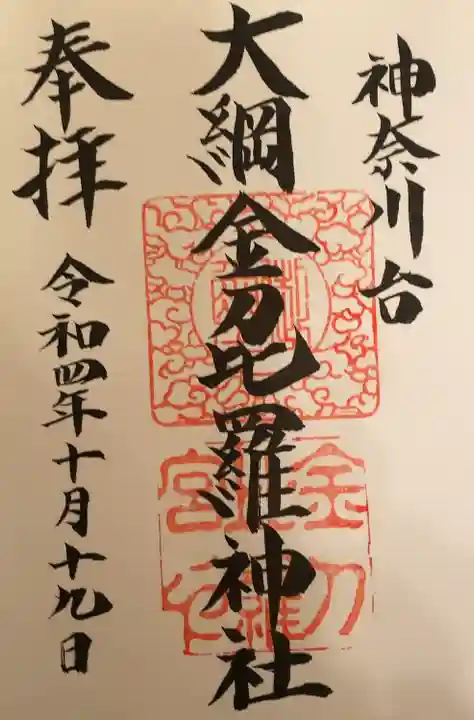 神奈川台
大綱金刀比羅神社
奉拝
令和四年十月十九日